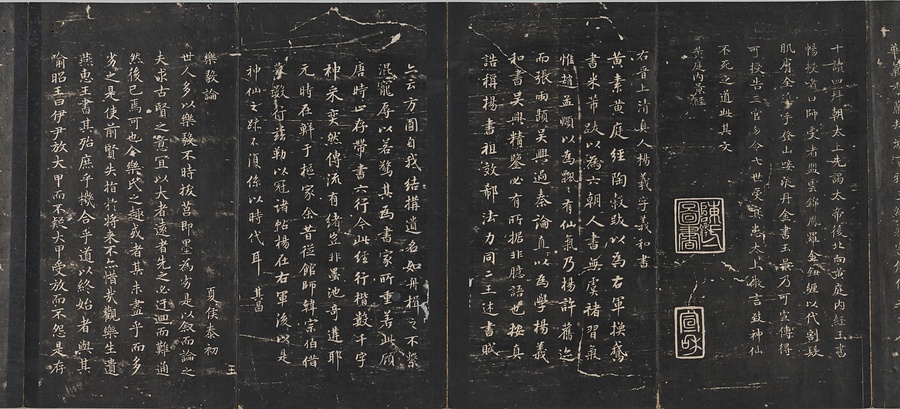 十讀四拜朝太上先謁太帝後北向黃庭內經玉書
暢授者曰師受者盟雲錦鳳羅金鈕纏以代割髮
肌膚全手登山歃液丹金書玉景乃可宣傳得
可授告三官勿令七世受冥患太上微言致神仙
不死之道此其文
黃庭內景經
陳氏圖書
宣和
右晉上清真人楊羲字羲和書
黃素黃庭經陶穀跋以為右軍換鵞
書米芾跋以為六朝人書無虞褚習氣
惟趙孟頫以為飄飄有仙氣乃楊許舊迹
而張雨題吳興過秦論直以為學楊羲
和書吳興精鑒必有所据非臆語也按真
誥稱楊書祖效郗法力同二王述書賦
亦云方圓自我結構遺名如舟楫之不繫
混寵辱以若驚其為書家所重若此顧
唐時止存帶書六行今此經行楷數千字
神采奕然傳流有緒豈非墨池奇遘耶
元時在鮮于樞家余昔從館師韓宗伯借
摹數行茲勒以冠諸帖楊在右軍後以是
神仙之跡不復係以時代耳 其昌
樂毅論 夏侯泰初
王
世人多以樂毅不時拔莒即墨為劣是以敘而論之
夫求古賢之意宜以大者遠者先之必迂迴而難通
然後已焉可也今樂氏之趣或者其未盡乎而多
劣之是使前賢失指於將來不亦惜哉觀樂生遺
燕惠王書其殆庶乎機合乎道以終始者與其
喻昭王曰伊尹放大甲而不疑大甲受放而不怨是存